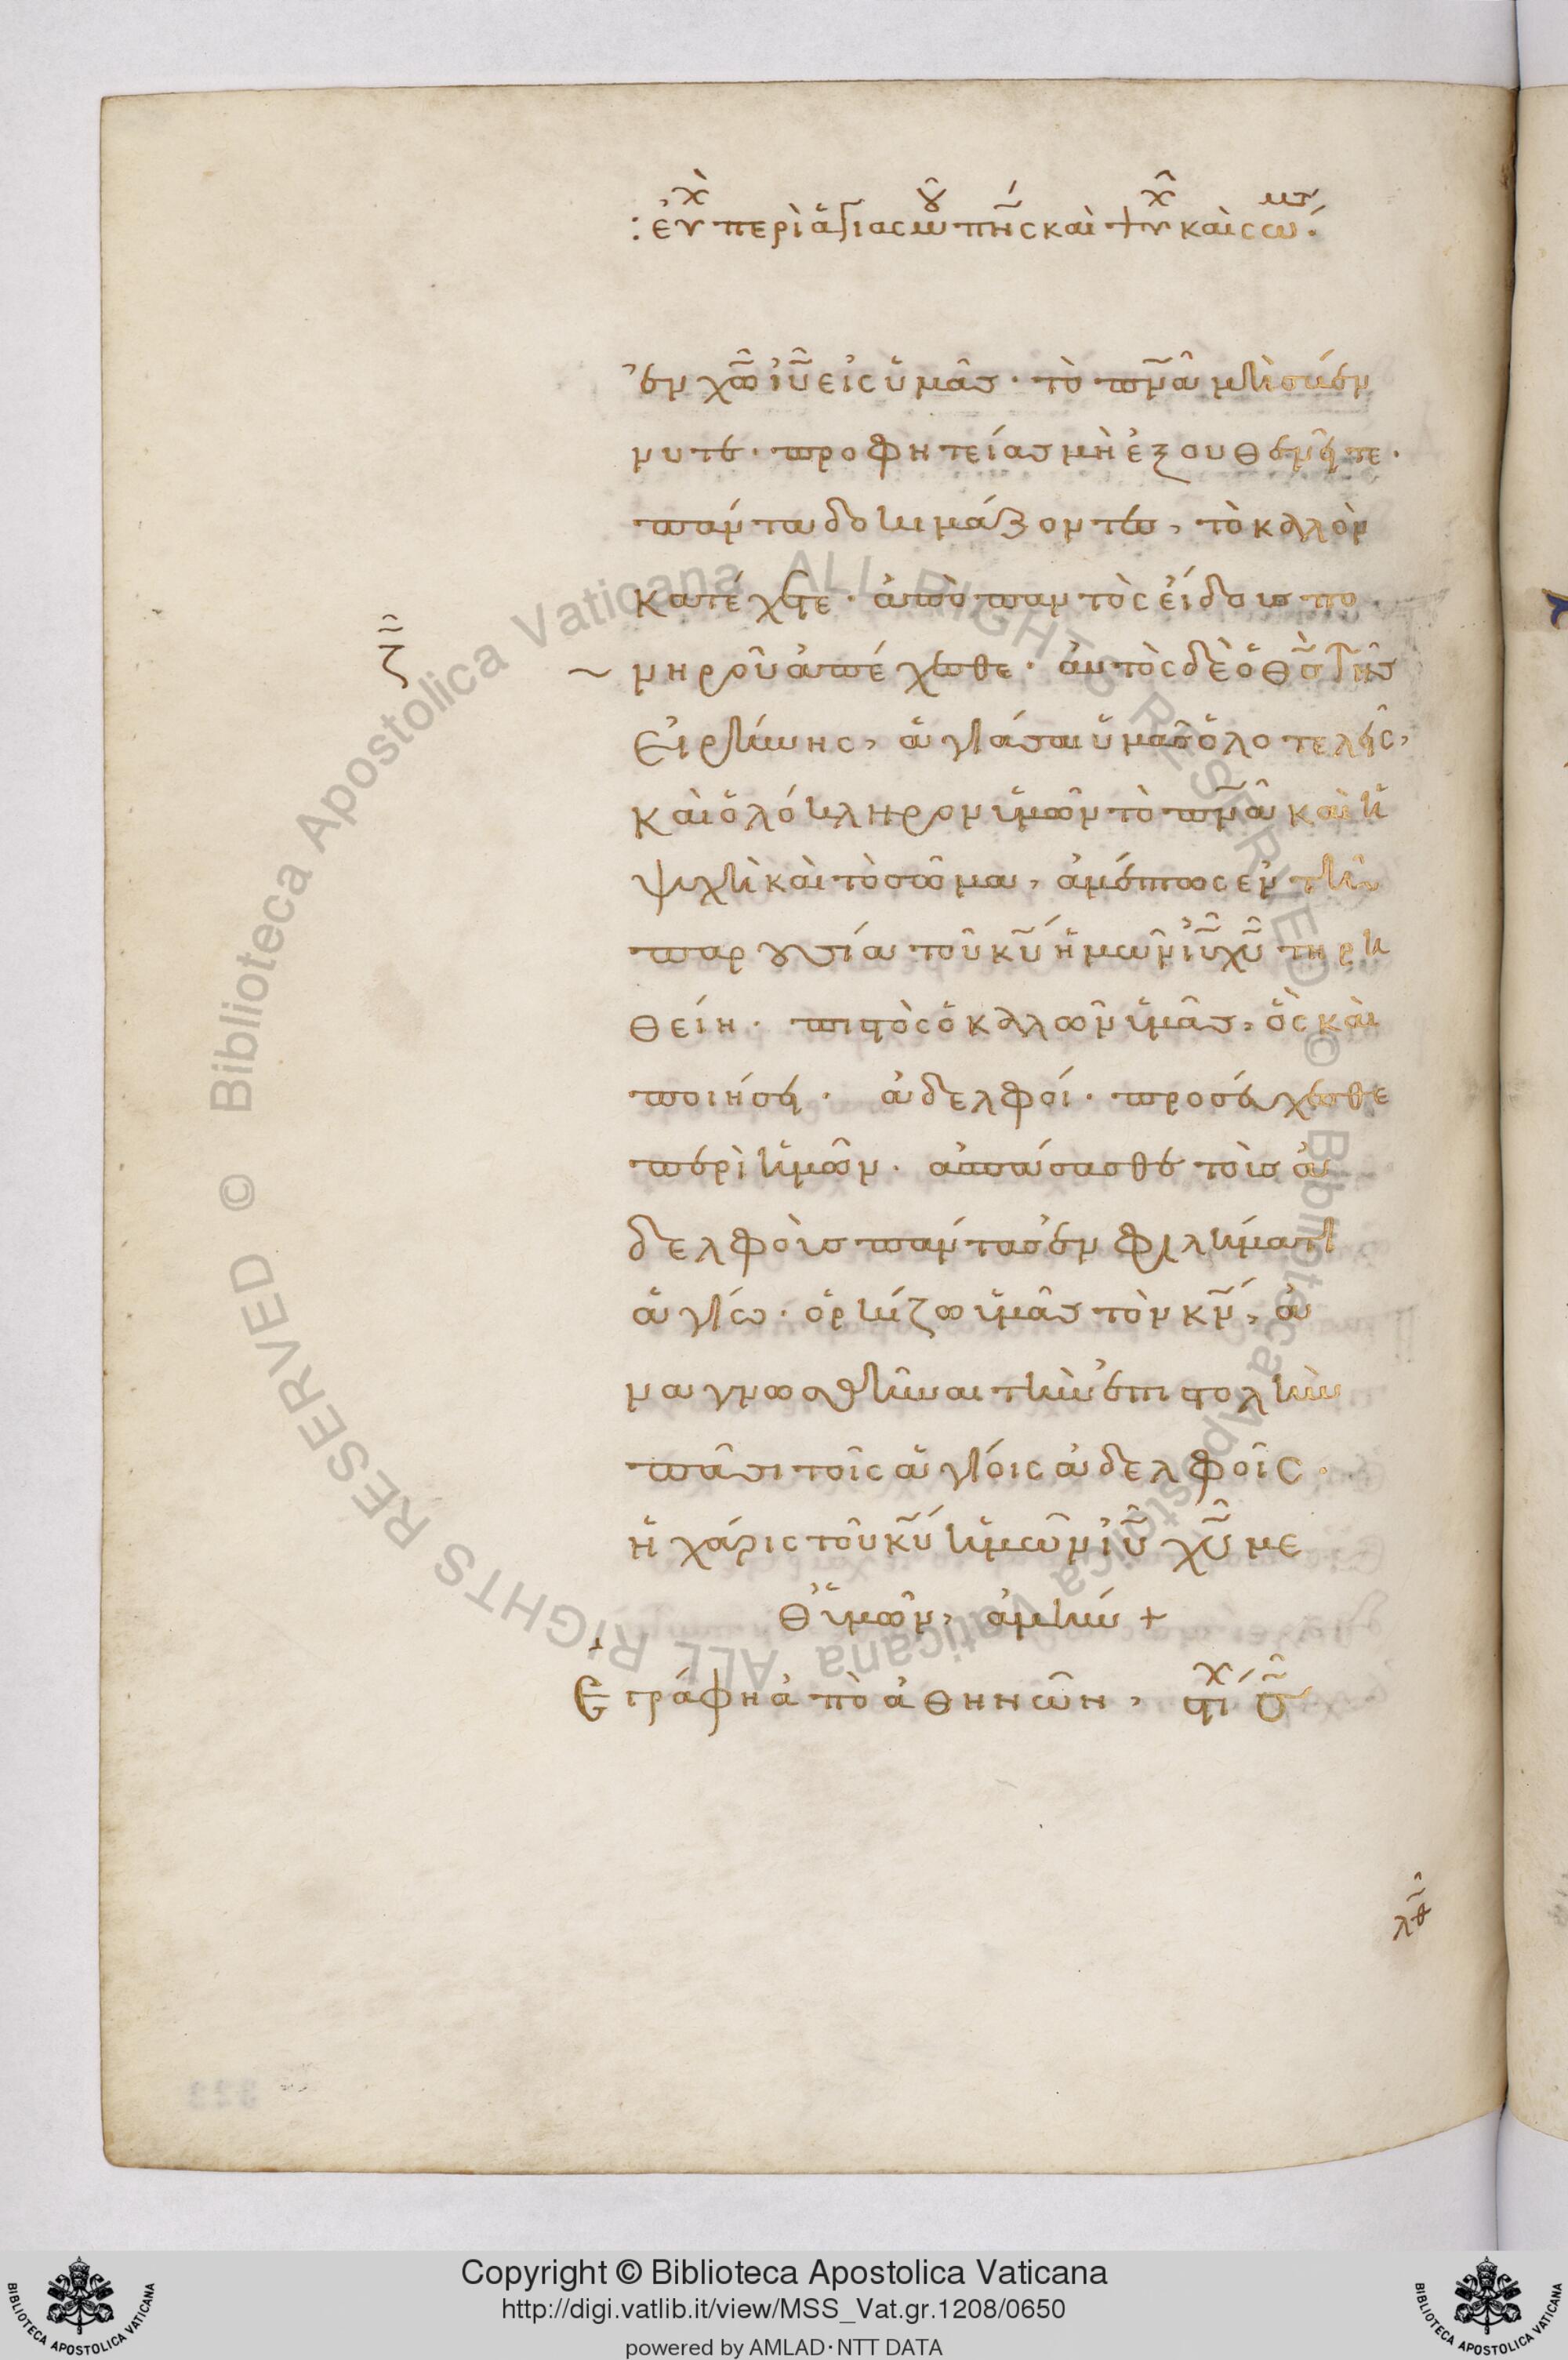 : εὐχὴ περὶ ἁγιασμοῦ πνς καὶ ψυχ καὶ σώμτ.
ἐν χῶ ιῦ εἰς ὑμᾶς· τὸ πνᾶ μὴ σβέν
νυτε· προφητείας μὴ ἐξουθενεῖτε·
πάντα δοκιμάζοντες, τὸ καλὸν
κατέχετε· ἀπὸ παντὸς εἴδους πο
νηροῦ ἀπέχεσθε· αὐτὸς δὲ ὁ θς τῆς
ζ
εἰρήνης, ἁγιάσαι ὑμᾶς ὁλοτελεῖς,
καὶ ὁλόκληρον ὑμῶν τὸ πνᾶ καὶ ἡ
ψυχὴ καὶ τὸ σῶμα, ἀμέμπτως ἐν τῆ
παρουσία τοῦ κυ ἡμῶν ιυ χυ τηρη
θείη· πιστὸς ὁ καλῶν ὑμᾶς, ὃς καὶ
ποιήσει· ἀδελφοί· προσεύχεσθε
περὶ ἡμῶν· ἀσπάσασθε τοὺς ἀ
δελφοὺς πάντας ἐν φιλήματι
ἁγίω· ὁρκίζω ὑμᾶς τὸν κν, ἀ
ναγνωσθῆναι τὴν ἐπιστολὴν
πᾶσι τοῖς ἁγίοις ἀδελφοῖς·
ἡ χάρις τοῦ κυ ἡμῶν ιυ χυ με
θ' ὑμῶν, ἀμήν +
Ἐγράφη ἀπὸ ἀθηνῶν, στίχ
λθ
Copyright © Biblioteca Apostolica Vaticana
http://digi.vatlib.it/view/MSS_Vat.gr.1208/0650
powered by AMLAD·NTT DATA
BIBLIOTECA APOSTOLICA VATICANA
BIBLIOTECA APOSTOLICA VATICANA
© Biblioteca Apostolica Vaticana ALL RIGHTS RESERVED
© Biblioteca Apostolica Vaticana ALL RIGHTS RESERVED